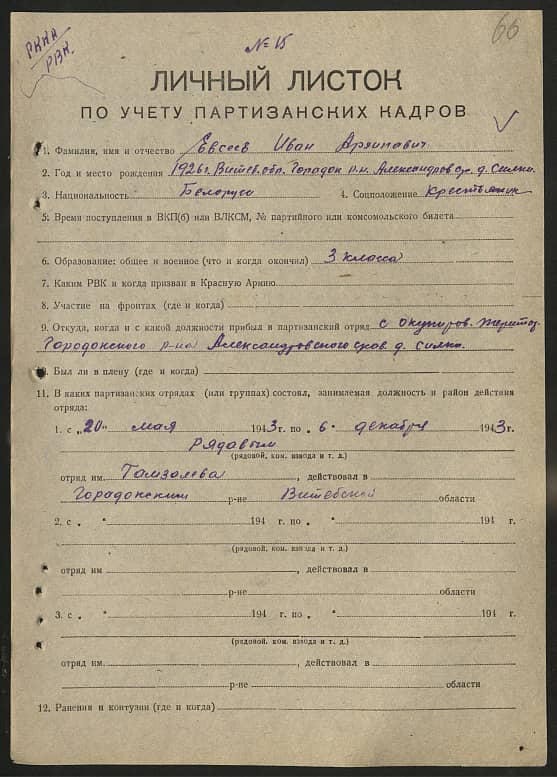 66
РККА
РВК
№ 15
ЛИЧНЫЙ ЛИСТОК
ПО УЧЕТУ ПАРТИЗАНСКИХ КАДРОВ
1. Фамилия, имя и отчество Евсеев Иван Архипович
2. Год и место рождения 1926г. Витеб. обл. Горадок р-н. Александров ср. д. Силки.
3. Национальность Белорус 4. Соцположение Крестьянин
5. Время поступления в ВКП(б) или ВЛКСМ, № партийного или комсомольского билета
6. Образование: общее и военное (что и когда окончил) 3 класса
7. Каким РВК и когда призван в Красную Армию
8. Участие на фронтах (где и когда)
9. Откуда, когда и с какой должности прибыл в партизанский отряд с окупиров.
Городокского р-на Александровского д.
10. Был ли в плену (где и когда)
11. В каких партизанских отрядах (или группах) состоял, занимаемая должность и район действия
отряда:
1. с „20" мая 1943 г. по „6" декабря 1943 г.
Рядавым
(рядовой, ком. взвода и т. д.)
отряд им , действовал в
Горадокским р-не Витебской области
2. с „ " 194 г. по „ " 194 г.
(рядовой, ком. взвода и т. д.)
отряд им , действовал в
р-не области
3. с „ " 194 г. по „ " 194 г.
(рядовой, ком. взвода и т. д.)
отряд им. , действовал в
р-не области
12. Ранения и контузии (где и когда)